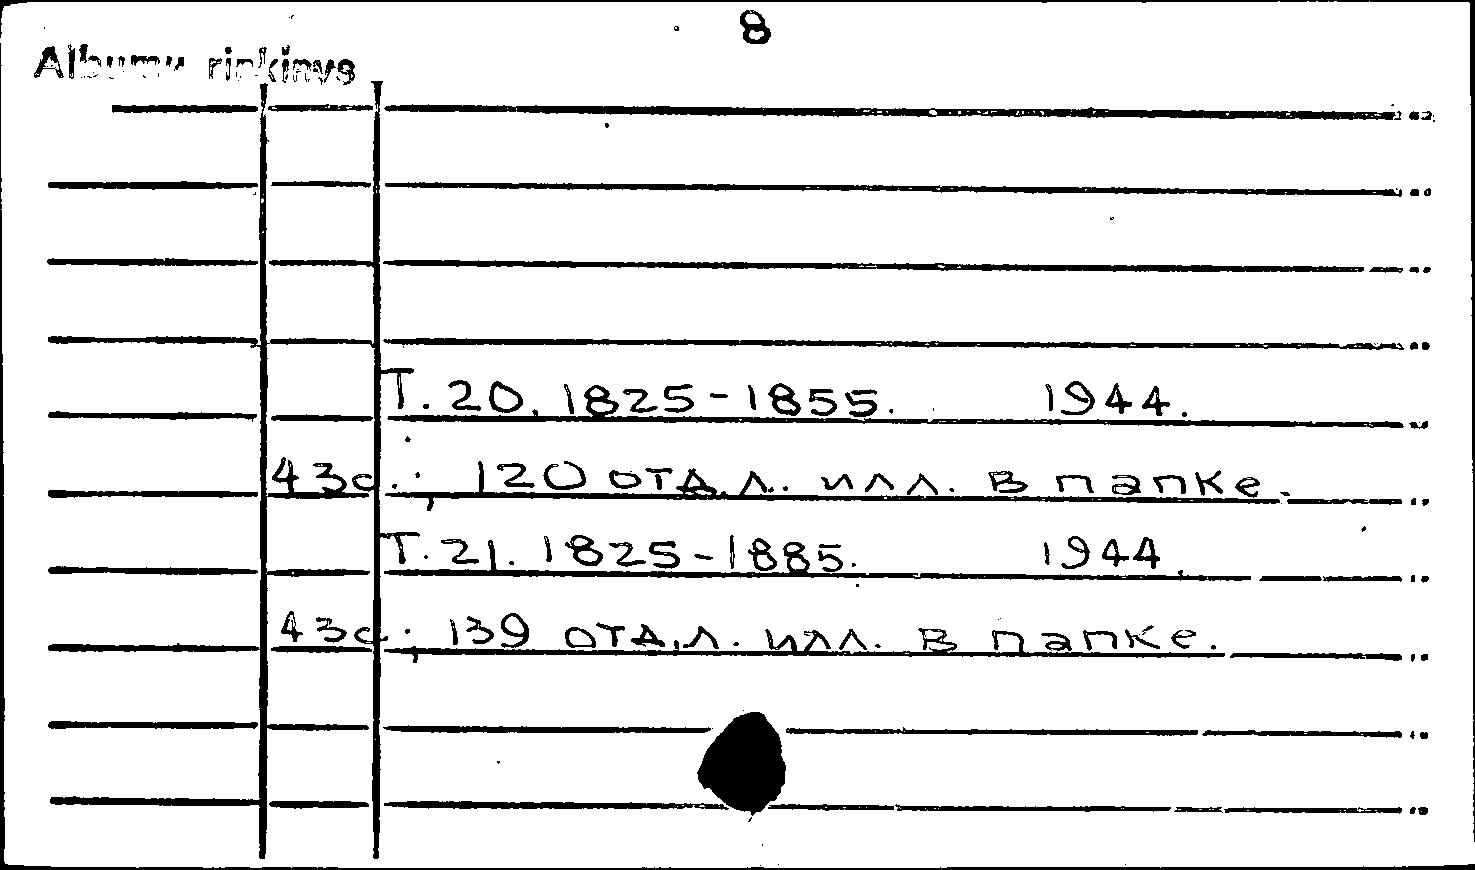 8
Albumų rinkinys
Т. 20. 1825-1855. 1944.
43с.; 120 отд. л. илл. в папке.
Т. 21. 1825-1885. 1944.
43с.; 139 отд. л. илл. в папке.